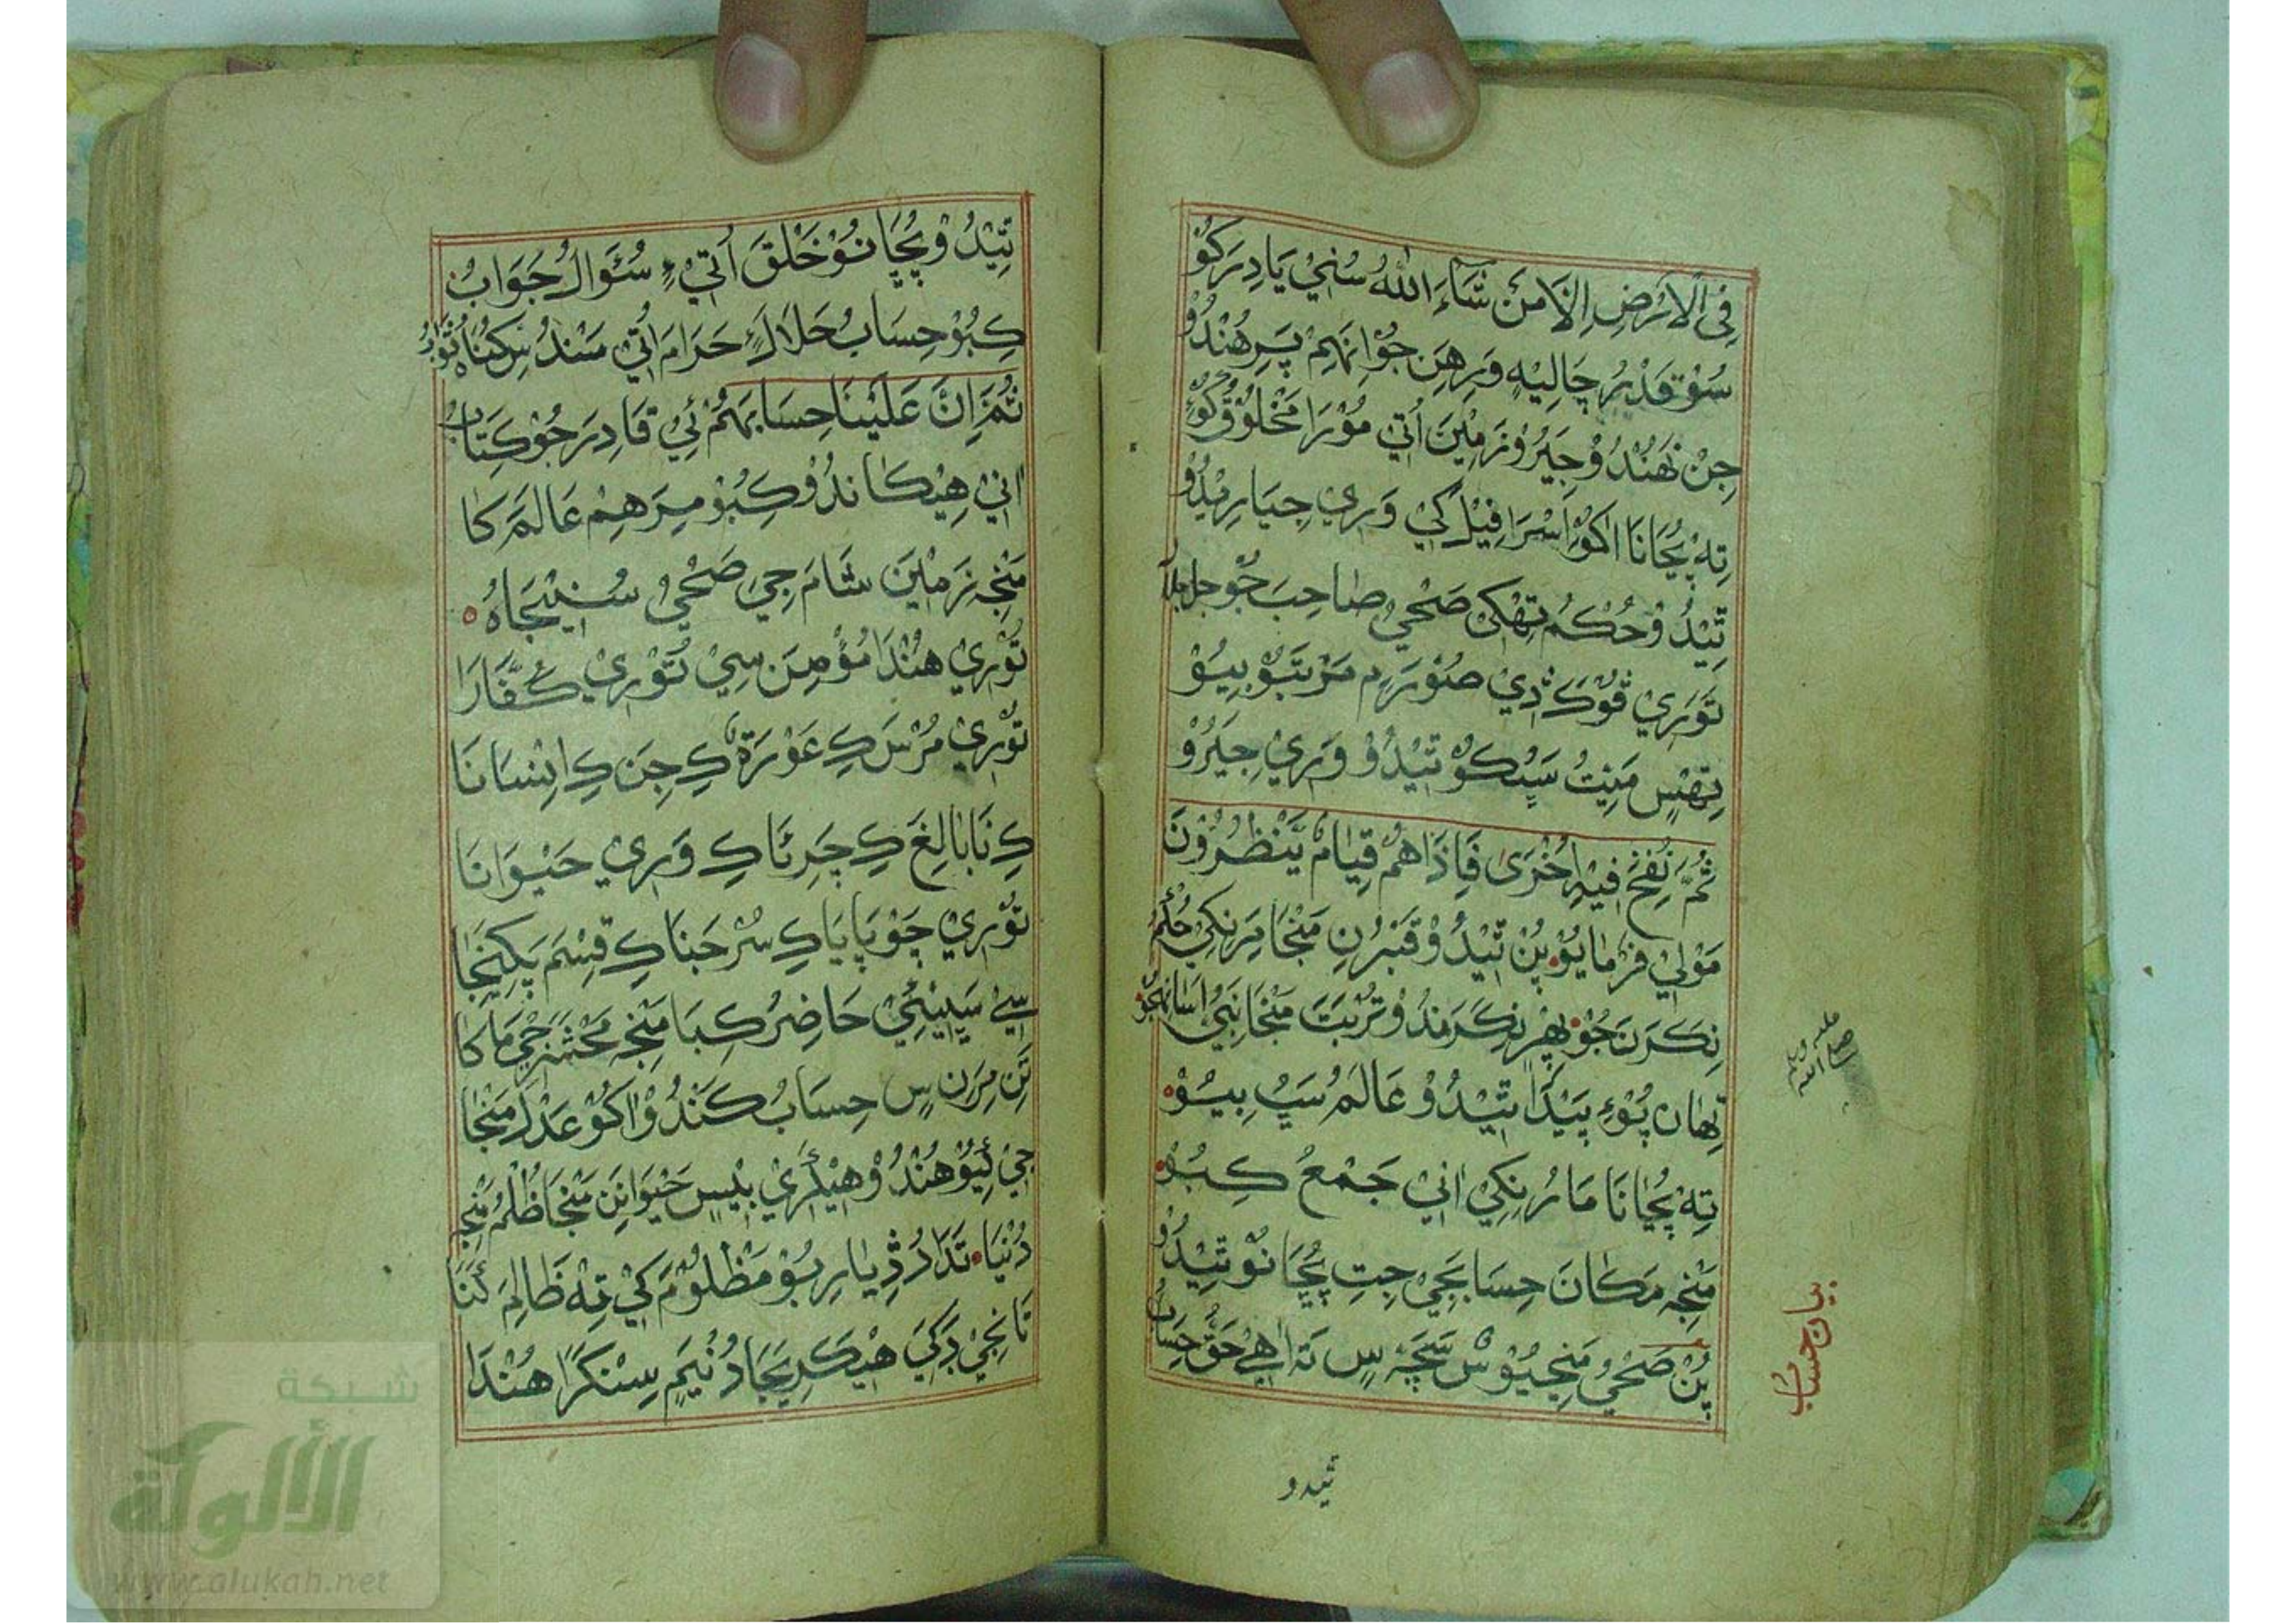 فِي الْاَرْضِ اِلَّا مَنْ شَاءَ اللهُ سُنِيْ يَادِرَ كَوُ
سُوْ قَدْرُ چَالِيْهِ وَرِهِن جُوْا نَهِمْ پَرِ هُنْدُوْ
جِنْ نَهُنْدُوْ جِيَرُوْ زَمِيْنَ اُتِي مُوْرَا مَخْلُوْقُ كُوْءِ
تِهْ پُڄَاڻَا اکوْ اَسْرَافِيْل کي وَرِي جِيَارِيْدُوْ
تِيْدُوْ حُكْمُ تِهْکي صَحْيْ صَاحِبَ جُوْ جل جلا
تَوَرِي ڦُوْکَ ڏِي صُوْرَ ۾ مَرْتَبُوْ بِيُوْ
تِهٖسِ مَيِتُ سَڀْڪو تِيْدُوْ وَرِيْ جِيَرُوْ
ثُمَّ نُفِخَ فِيْهِ اُخْرٰى فَاِذَاهُمْ قِيَامٌ يَّنْظُرُوْنَ
مَوْلٰي فَرْمَايُوْ پُنْ تِيْدُوْ قَبَرُنِ مَنْجَا مَرَنكِي حُكْمُ
نِڪَرَنَ جُوْ پِهْرِ نِڪَرَنْدُوْ تُرْبَتَ مَنْجَا نَبِيْ اسَانهجُوْ
صلي الله عليه وسلم
تِهَان پُوْءِ پَيْدَا تِيْدُوْ عَالَمُ سَڀُ بِيُوْ
تِهْ پُڄَاڻَا مَارُنِكِي اُنِيْ جَمْعُ ڪِبُوْ
مَنْجِهْ مَكَانَ حِسَابَجِي جِتِ پُڄَانوْ تِيْدُوْ
پُنْ صَحْيْ مَنْجِيُوْس سَچَہْ سِ تَہ اٰهِيْ حَقُّ حِسَابُ
بيان حساب
ثيدو
تِيْدُوْ پُڄَانُوْ خَلْقَ اُتِيْ ءِ سُؤَالُ جَوَابُ
ڪِبُوْ حِسَابُ حَلَالَءِ حَرَامَ اُتِي مَسْندُسِ كِنُاَ ثَوَابُ
ثُمَّ اِنَّ عَلَيْنَا حِسَابَهُمْ ئِيْ قَادِرَ جُوْ ڪِتَابُ
اُنِيْ هِيْڪَانْدُوْ ڪِبُوْ مِرَهِمْ عَالَمَ كَا
مَنْجِهْ زَمِيْنَ شَامَ جِيَ صَحْيْ سُڃِيْجَاهُ
تَوْرِيْ هُنْدَا مُؤْمِنَ سِيْ تَوْرِيْ كُفَّارَا
تَوْرِيْ مُرْسَ ڪِ عَوْرَةَ ڪِ جِنَ ڪِ اِنْسَانَا
ڪِ نَابَالِغَ ڪِ چَرِئَا ڪِ وَرِيْ حَيْوَانَا
تَوْرِيْ چَوْپَايَا ڪِ سُرْحَبَنَا ڪِ قِسْمَ پَکِنجَا
سِيْ سَڀِيْئِيْ حَاضِرُ ڪِبَا مَنْجِهْ مَحْشَرَجِيْ مَا كَا
تَنِ مِرَنِ سِ حِسَابُ ڪَنْدُوْ اکوْ عَدْلَ مَنْجَا
جِيْ ڪِيُوْ هُنْدُوْ هِيْڪَرِيْ بِيْسِ حَيْوَانَنِ مَنْجَا ظُلْمُ مَنْجِهْ
دُنْيَا تَدَ دُڏِيَارِبُوْ مَظْلُوْمَ کِيْ تِهْ ظَالِمَ كَنَا
تَانِجِيْ بَدَکِيَ هِيْڪَرِيَجَا دُنْيَمِ سِنْڪَرَا هُنْدَا
شبكة
الألوكة
www.alukah.net